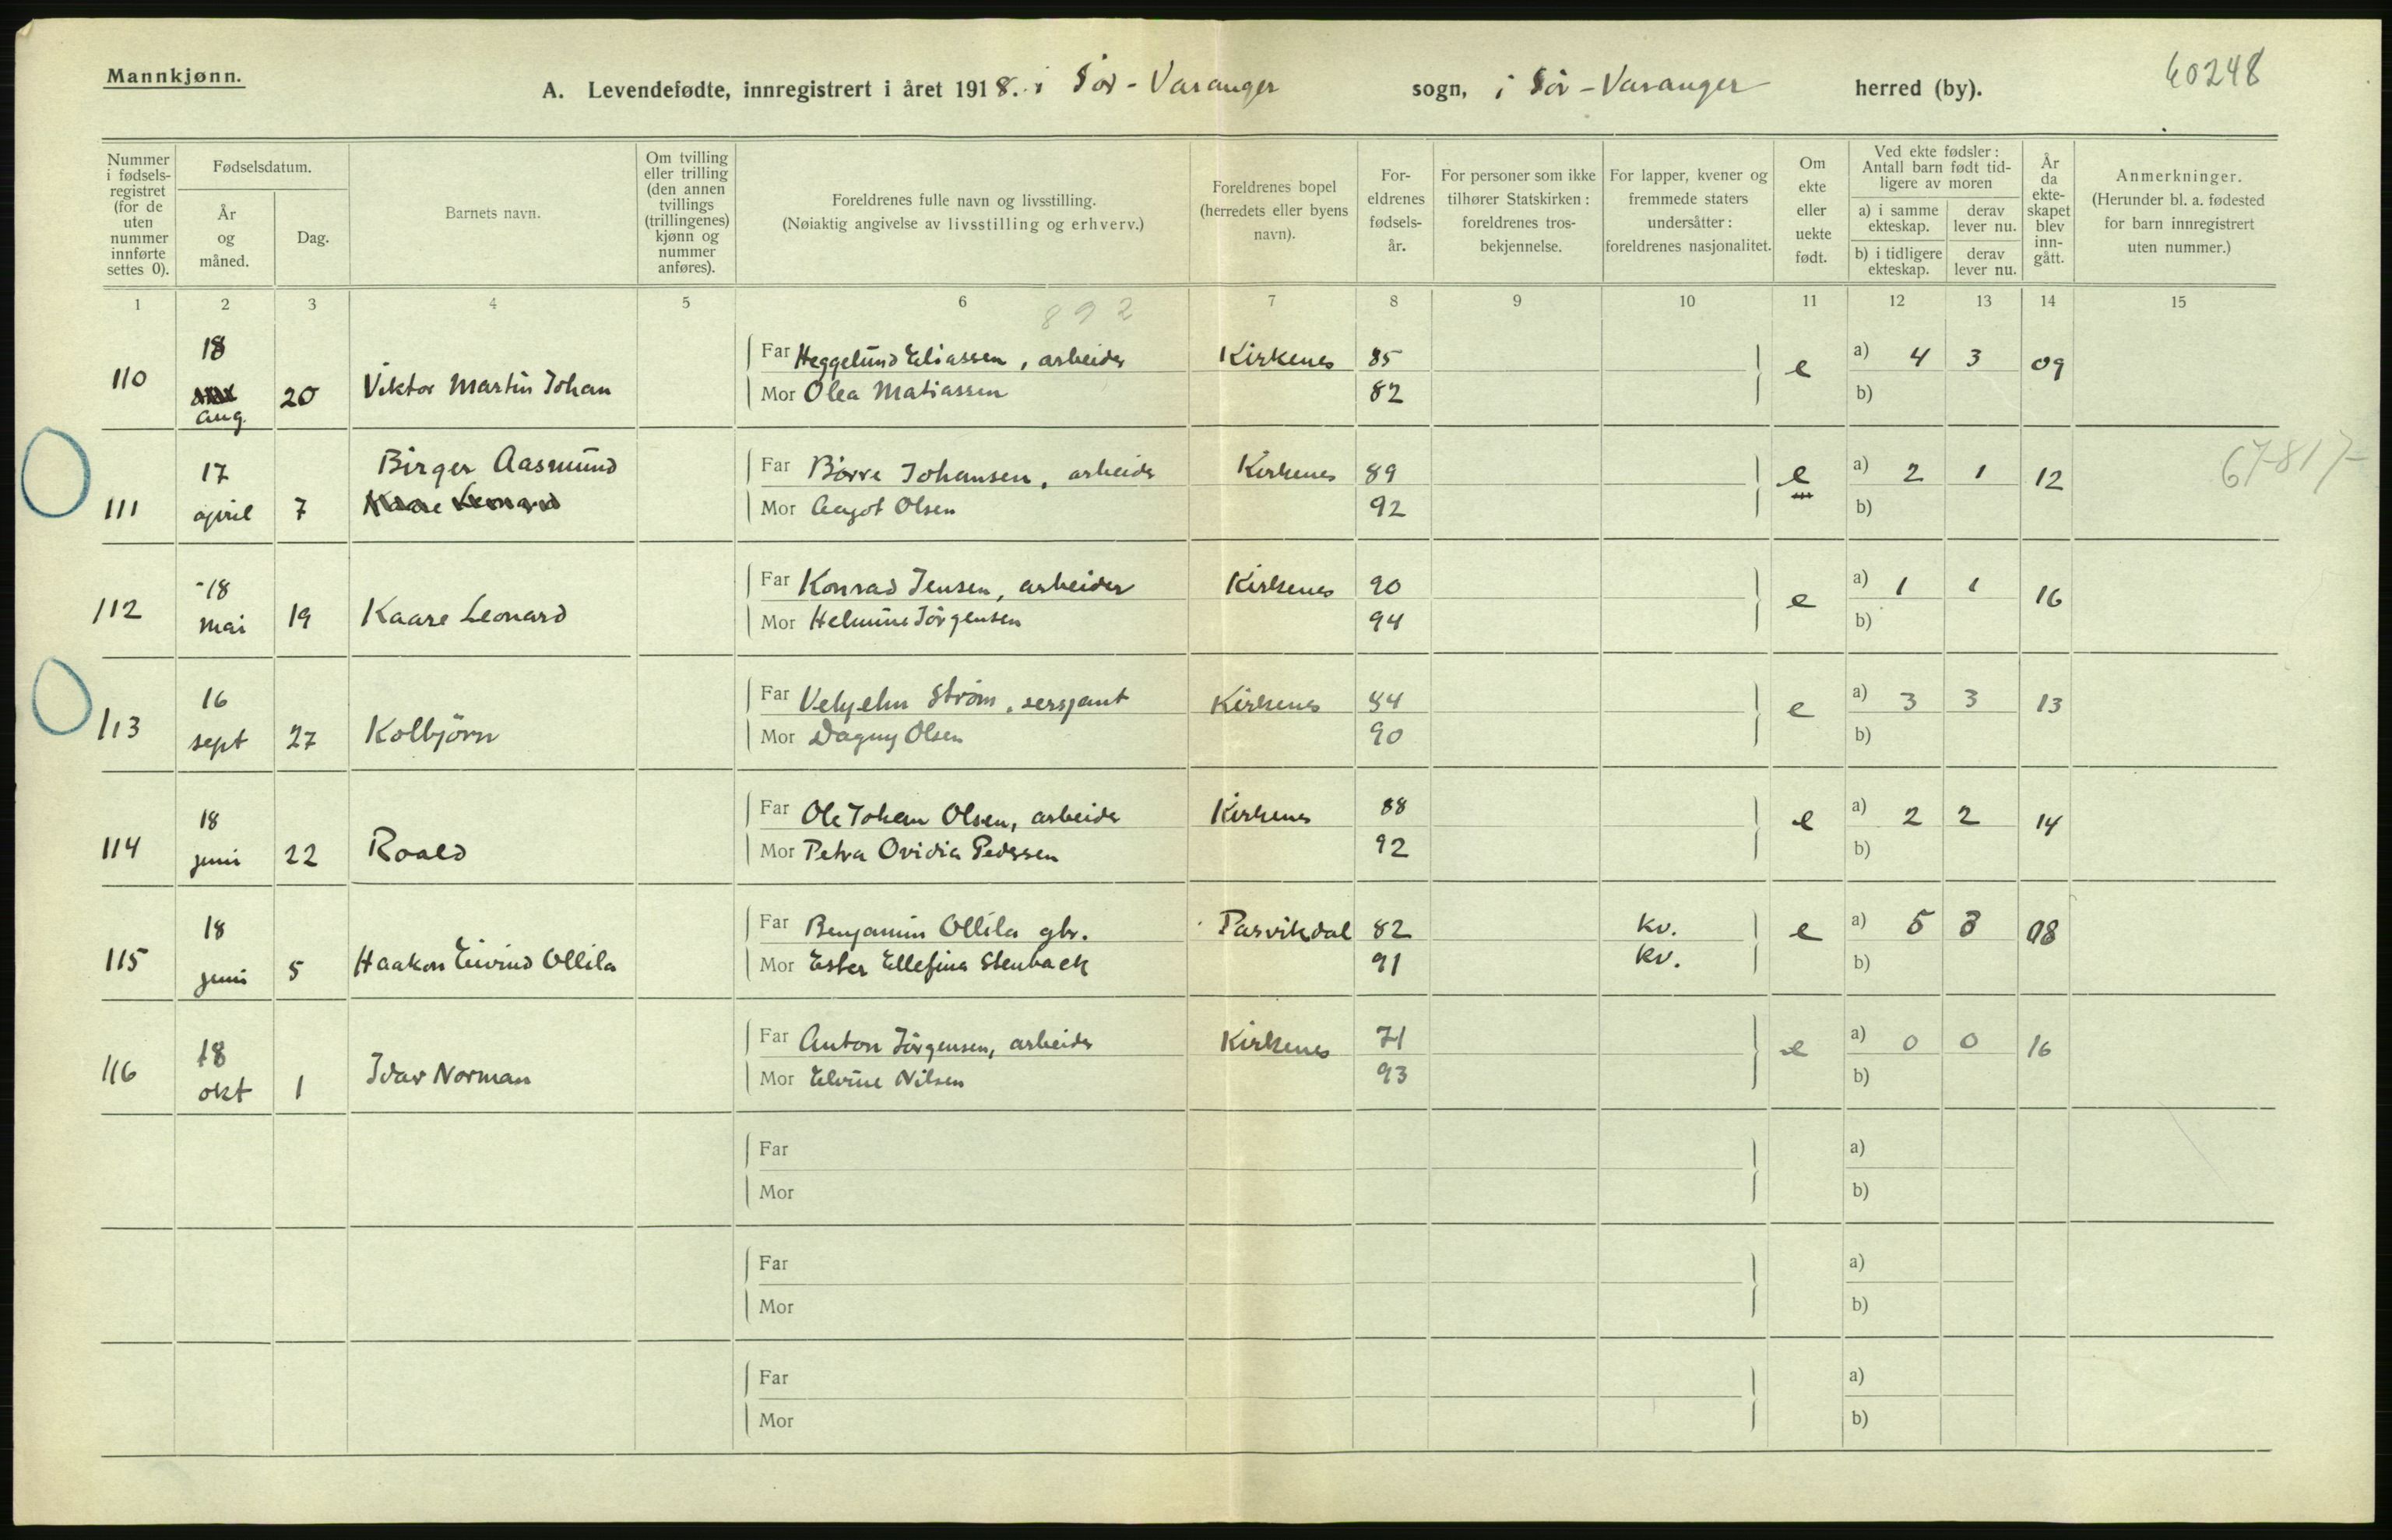 Mannkjønn.
A. Levendefødte, innregistrert i året 1918. i Sør-Varanger sogn, i Sør-Varanger herred (by).
60248
Nummer i fødsels-registret (for de uten nummer innførte settes 0).
Fødselsdatum.
År og måned.
Dag.
Barnets navn.
Om tvilling eller trilling (den annen tvillings (trillingenes) kjønn og nummer anføres).
Foreldrenes fulle navn og livsstilling.
(Nøiaktig angivelse av livsstilling og erhverv.)
Foreldrenes bopel (herredets eller byens navn).
For-eldrenes fødsels-år.
For personer som ikke tilhører Statskirken: foreldrenes tros-bekjennelse.
For lapper, kvener og fremmede staters undersåtter: foreldrenes nasjonalitet.
Om ekte eller uekte født.
Ved ekte fødsler: Antall barn født tid-ligere av moren
a) i samme ekteskap.
derav lever nu.
b) i tidligere ekteskap.
derav lever nu.
År da ekte-skapet blev inn-gått.
Anmerkninger.
(Herunder bl. a. fødested for barn innregistrert uten nummer.)
1 2 3 4 5 6 7 8 9 10 11 12 13 14 15
892
110 18 aug 20 Viktor Martin Johan
Far Heggelund Eliassen, arbeider Kirkenes 85 e a) 4 3 09
Mor Olea Matiassen 82 b)
111 17 april 7 Birger Aasmund
Kaare Leonard
Far Børre Johansen, arbeider Kirkenes 89 e a) 2 1 12 67817-
Mor Aagot Olsen 92 b)
112 -18 mai 19 Kaare Leonard
Far Konrad Jensen, arbeider Kirkenes 90 e a) 1 1 16
Mor Helmine Jörgensen 94 b)
113 16 sept 27 Kolbjörn
Far Velhjelm Ström, sersjant Kirkenes 84 e a) 3 3 13
Mor Dagny Olsen 90 b)
114 18 juni 22 Roald
Far Ole Johan Olsen, arbeider Kirkenes 88 e a) 2 2 14
Mor Petra Ovidia Pedersen 92 b)
115 18 juni 5 Haakon Eivind Ollila
Far Benjamin Ollila gbr. Pasvikdal 82 kv. e a) 5 3 08
Mor Ester Ellefina Stenback 91 kv. b)
116 18 okt 1 Idar Norman
Far Anton Jörgensen, arbeider Kirkenes 71 e a) 0 0 16
Mor Elvine Nilsen 93 b)
Far a)
Mor b)
Far a)
Mor b)
Far a)
Mor b)